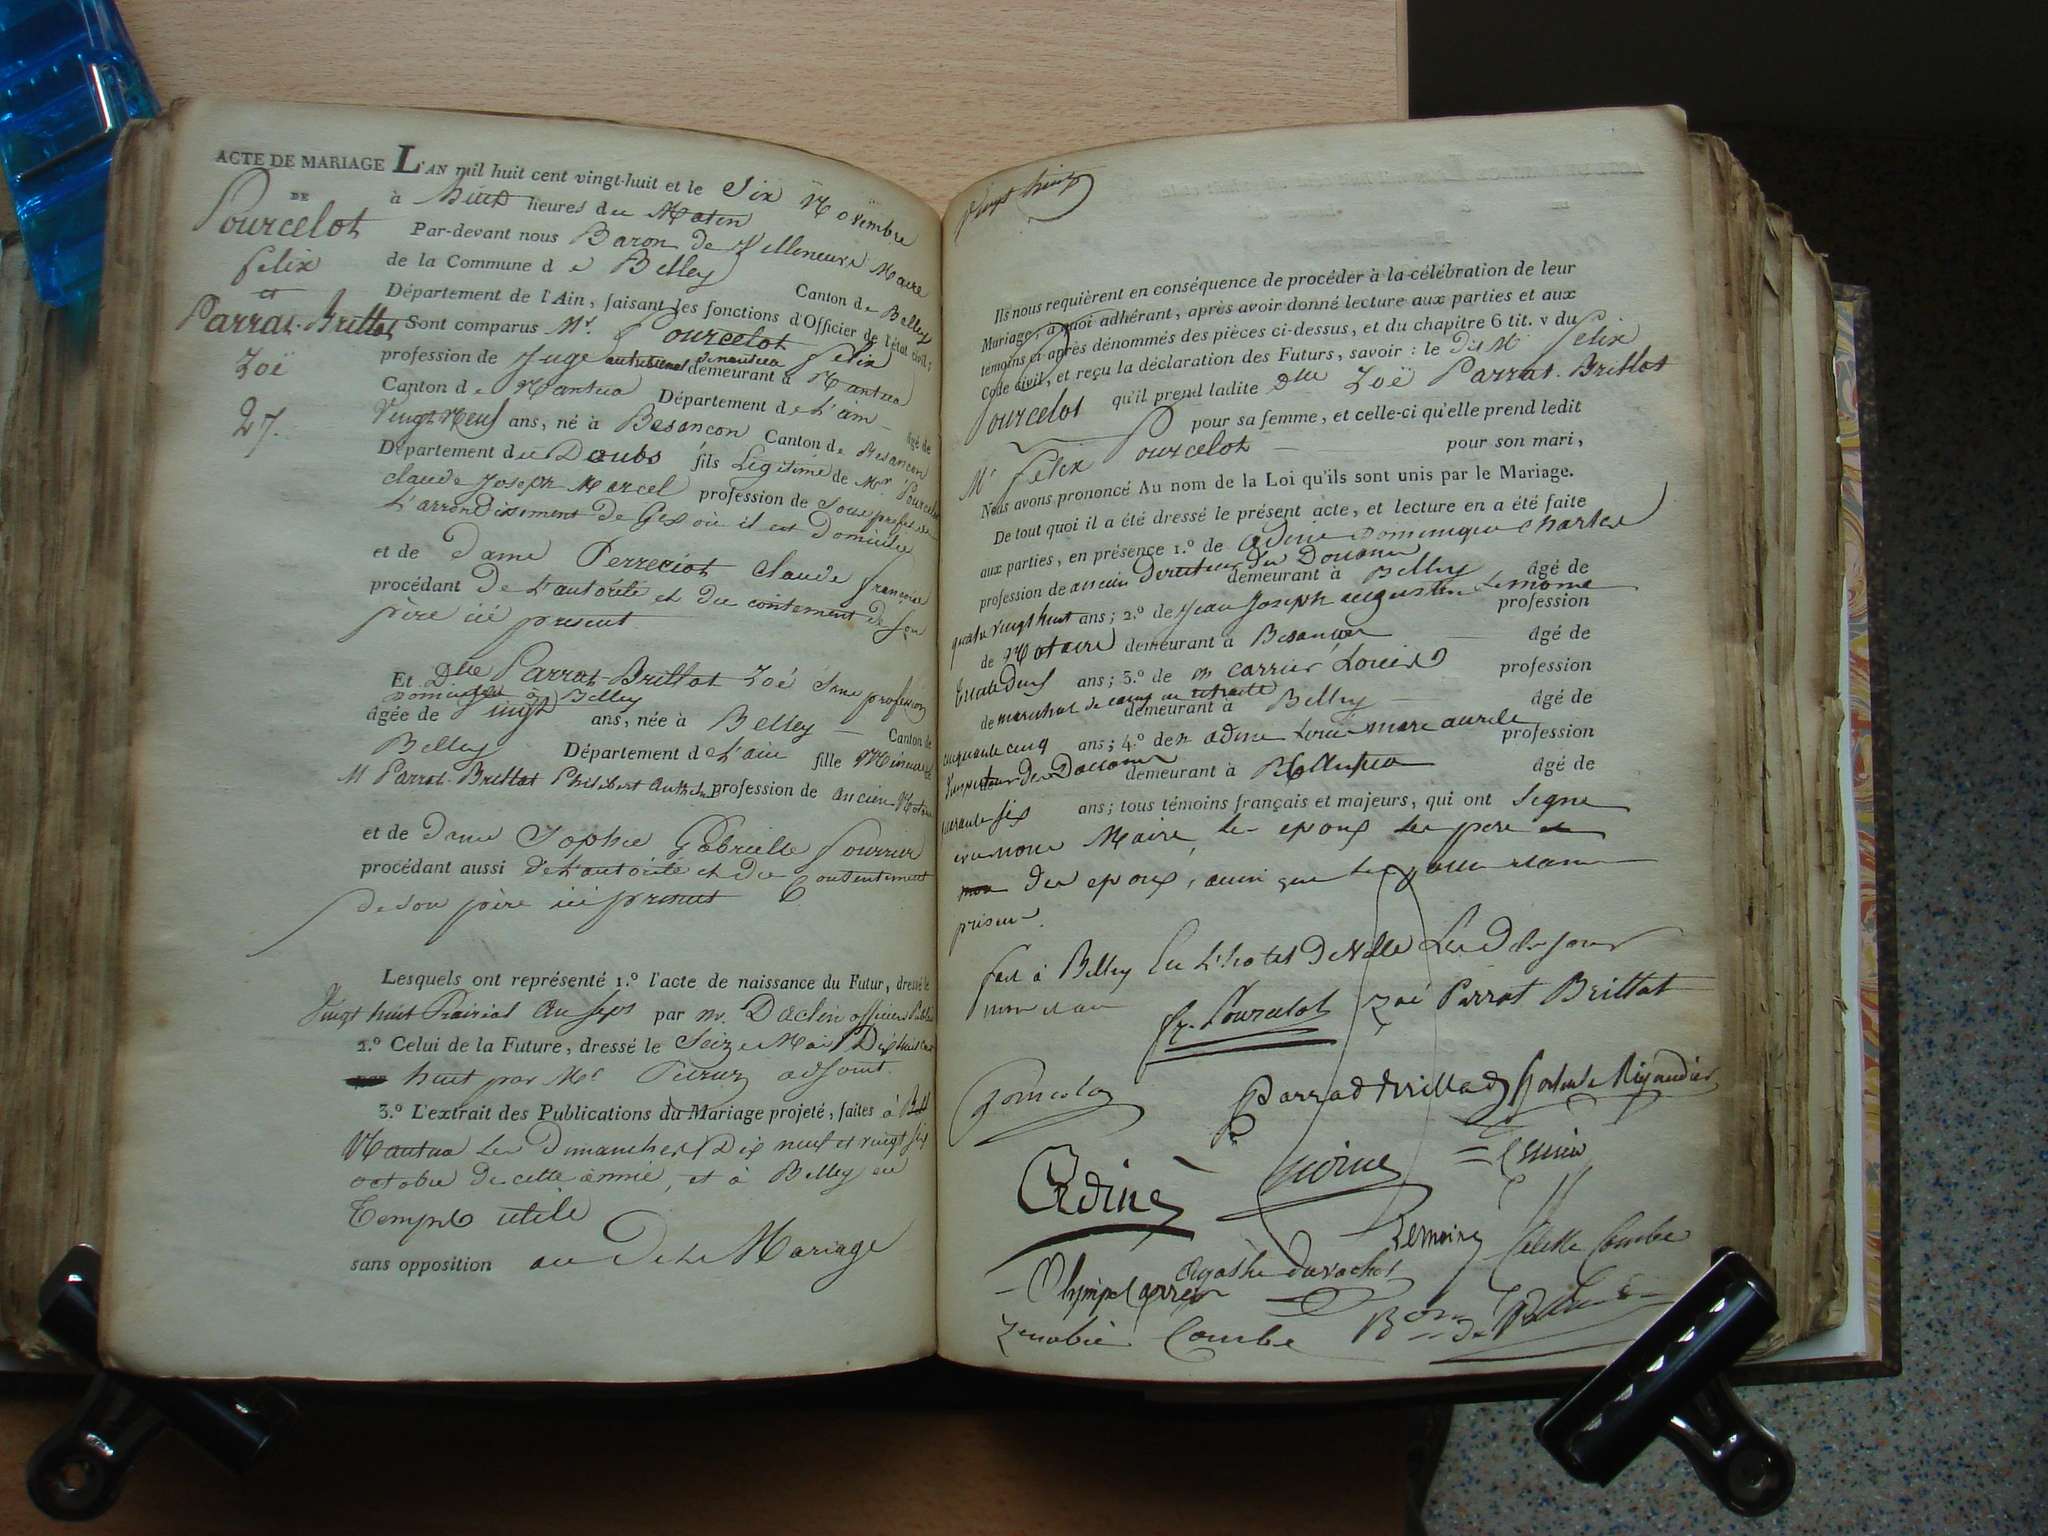 ACTE DE MARIAGE
DE
Pourcelot
Felix
et
Parrat-Brillat
Zoë
27.
L'AN mil huit cent vingt-huit et le Six Novembre
à huit heures du Matin
Par-devant nous Baron de Villeneuve Maire
de la Commune de Belley Canton de Belley
Département de l'Ain, faisant les fonctions d'Officier de l'état civil;
Sont comparus Mr. Pourcelot Felix
profession de Juge demeurant à Nantua
Canton de Nantua Département de L'ain âgé de
Vingt Neuf ans, né à Besancon Canton de Besancon
Département du Doubs fils Legitime de Mr Pourcelot
Claude Joseph Marcel profession de Sous prefet de
L'arrondissement de Gex où il est Domicilié
et de Dame Perreciot Claude françoise
procédant De L'autorité et du contement de son
père ici present
Et Dlle Parrat-Brillat Zoé Sans profession
Domiciliée à Belley
âgée de Vingt ans, née à Belley Canton de
Belley Département de L'ain fille Mineure de
M Parrat-Brillat Philibert profession de ancien Notaire
et de dame Sophie Gabrielle fourrier
procédant aussi de L'autorité et du Consentement
de son père ici present
Lesquels ont représenté 1.º l'acte de naissance du Futur, dressé le
Vingt huit Prairial an sept par mr. Daclin officier Public
2.º Celui de la Future, dressé le Seize Mai Dix huit cent
huit par Mr adjoint.
3.º L'extrait des Publications du Mariage projeté, faites à
Nantua les Dimanches Dix neuf et vingt six
octobre de cette année, et à Belley en
Temps utile
sans opposition au Dit Mariage
Vingt huit
Ils nous requièrent en conséquence de procéder à la célébration de leur
Mariage, à quoi adhérant, après avoir donné lecture aux parties et aux
témoins ci-après dénommés des pièces ci-dessus, et du chapitre 6 tit. v du
Code civil, et reçu la déclaration des Futurs, savoir : le dit Mr Felix
Pourcelot qu'il prend ladite dlle Zoë Parrat-Brillat
pour sa femme, et celle-ci qu'elle prend ledit
Mr Felix Pourcelot pour son mari,
Nous avons prononcé Au nom de la Loi qu'ils sont unis par le Mariage.
De tout quoi il a été dressé le présent acte, et lecture en a été faite
aux parties, en présence 1.º de Adine Dominique Charles
profession de ancien Directeur des Douanes demeurant à Belley âgé de
quatre vingt huit ans; 2.º de Jean Joseph augustin Lemoine profession
de Notaire demeurant à Besancon âgé de
Trente Deux ans; 3.º de m carrier Louis profession
de marechal de camp en retraite demeurant à Belley âgé de
cinquante cinq ans; 4.º de m adine Louis marc aurele profession
d'inspecteur des Douanes demeurant à âgé de
quarante six ans; tous témoins français et majeurs, qui ont Signé
avec nous Maire, les epoux les pere
des epoux, ainsi que les
fait à Belley En L'hotel De Ville Les D. jour
mois et an
fx. Pourcelot Zoé Parrat Brillat
Pourcelot
Adine
Lemoine
Agathe
Zenobie Combe Bon de